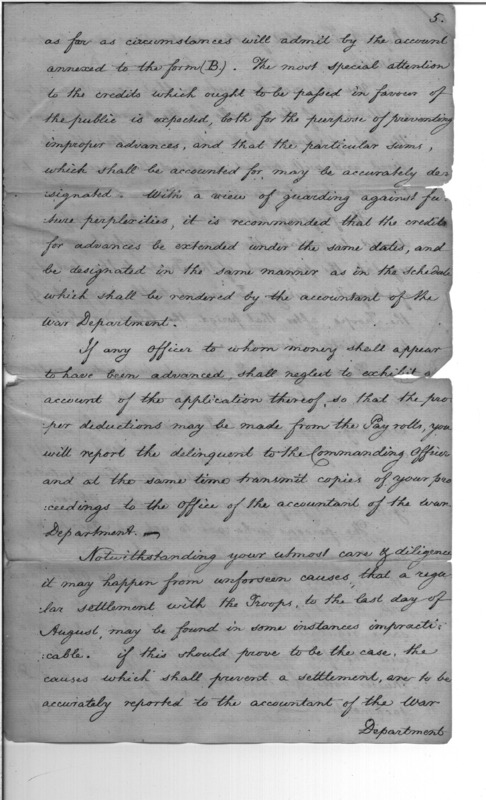 5.
as far as circumstances will admit by the account
annexed to the form (B.). The most special attention
to the credits which ought to be passed in favour of
the public is expected, both for the purpose of preventing
improper advances, and that the particular sums,
which shall be accounted for, may be accurately de=
=signated. With a view of guarding against fu
=ture perplexities, it is recommended that the credits
for advances be extended under the same dates, and
be designated in the same manner as in the schedule
which shall be rendered by the accountant of the
War Department.
If any Officer to whom money shall appear
to have been advanced, shall neglect to exhibit a
account of the application thereof, so that the pro
per deductions may be made from the Pay rolls, you
will report the delinquent to the Commanding Officer
and at the same time transmit copies of your pro
:ceedings to the Office of the accountant of the War
Department. —
Notwithstanding your utmost care & diligence
it may happen from unforseen causes, that a regu
:lar settlement with the Troops, to the last day of
August, may be found in some instances impracti:
:cable. if this should prove to be the case, the
causes which shall prevent a settlement, are to be
accurately reported to the accountant of the War
Department